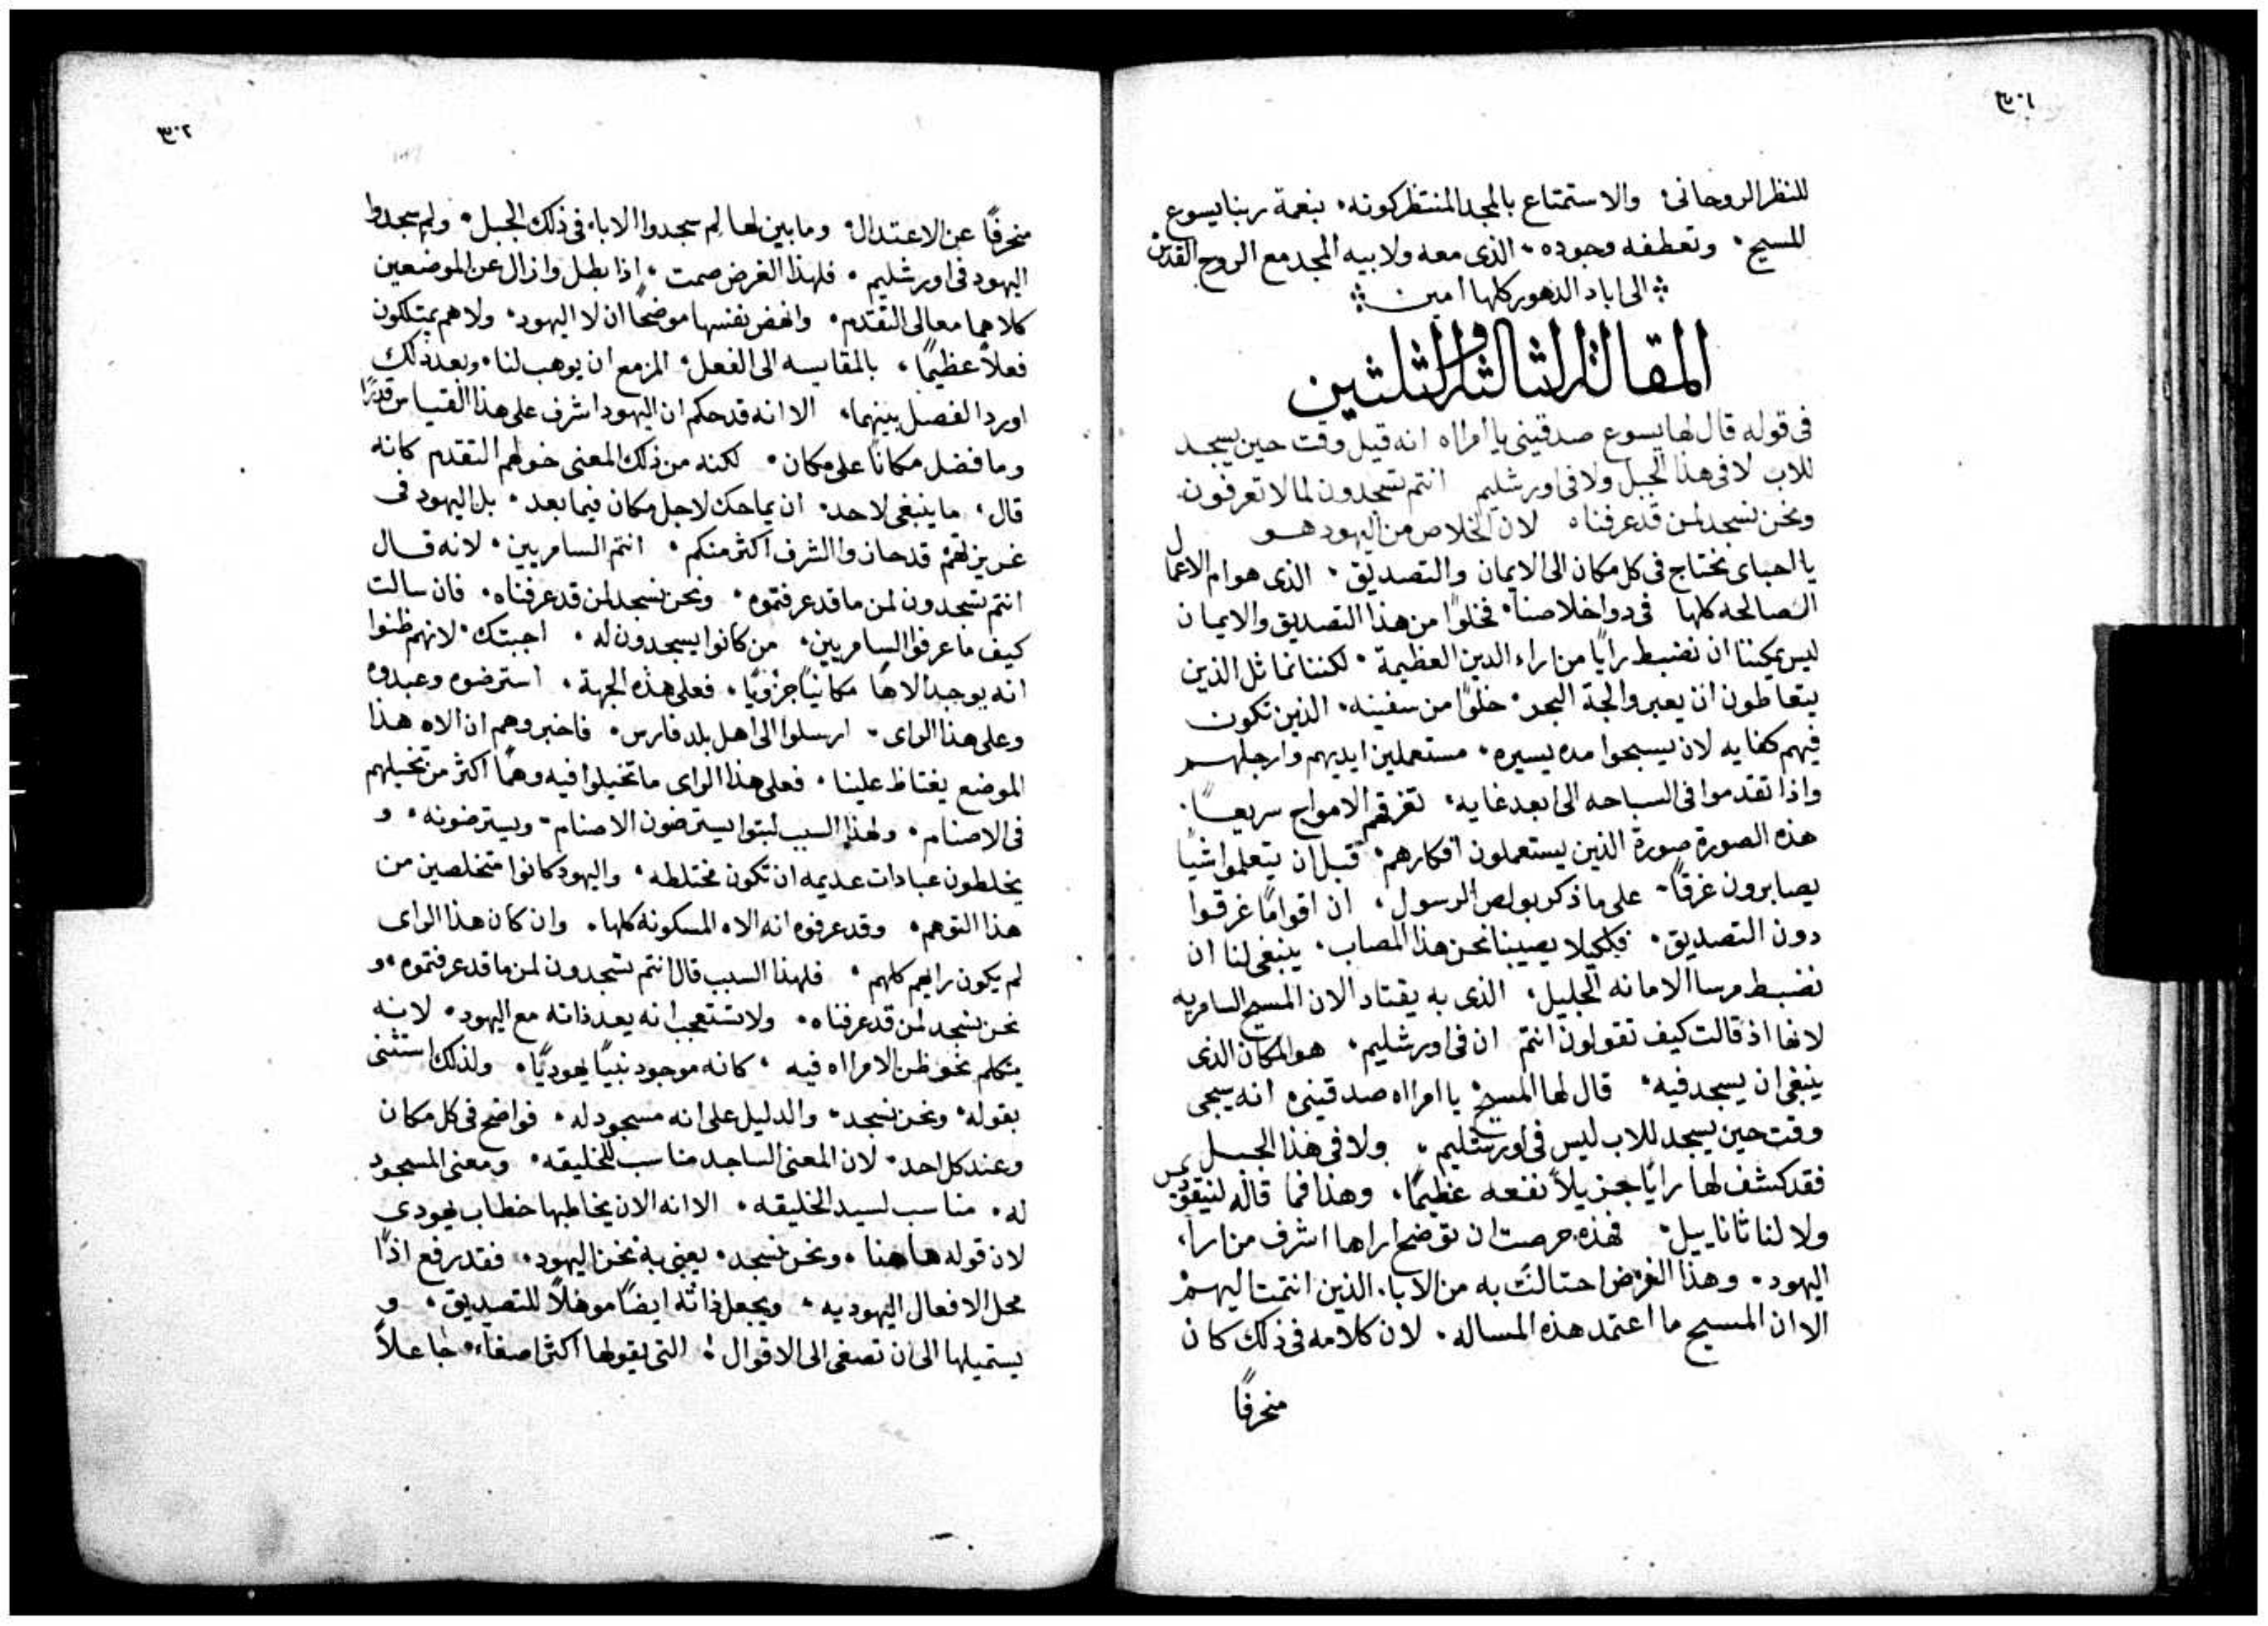 ٣٠١
للنظر الروحانى؛ والاستمتاع بالمجد المنتظر كونه، بنعمة ربنا يسوع
المسيح، وتعطفه وجوده، الذى معه ولابيه المجد مع الروح القدس
الى اباد الدهور كلها امين
المقالة الثالثة والثلثين
فى قوله قال لها يسوع صدقينى يا امراه انه قبل وقت حين يسجد
للاب لا فى هذا الجبل ولا فى اورشليم انتم تسجدون لما لا تعرفون.
ونحن نسجد لمن قد عرفناه لان الخلاص من اليهود هو
يا احباى نحتاج فى كل مكان الى الايمان والتصديق، الذى هو ام الاعمال
الصالحه كلها فى دوا خلاصنا، فخلوًا من هذا التصديق والايمان
ليس يمكننا ان نضبط رايًا من اراء الدين العظيمة، لكننا نماثل الذين
يتعاطون ان يعبروا لجة البحر، خلوًا من سفينه، الذين تكون
فيهم كفايه لان يسبحوا مده يسيره، مستعملين ايديهم وارجلهم
واذا تقدموا فى السباحه الى ابعد غايه، تغرقهم الامواج سريعًا.
هذه الصورة صورة الذين يستعملون افكارهم، قبل ان يتعلموا شيًا
يصابرون غرقًا، على ما ذكر بولص الرسول، ان اقوامًا غرقوا
دون التصديق، فلكيلا يصيبنا نحن هذا المصاب، ينبغى لنا ان
نضبط مرسا الامانه الجليل، الذى به يقتاد الان المسيح السامريه
لانها اذ قالت كيف تقولون انتم ان فى اورشليم، هو المكان الذى
ينبغى ان يسجد فيه، قال لها المسيح يا امراه صدقينى، انه سيجى
وقت حين يسجد للاب ليس فى اورشليم، ولا فى هذا الجبل
فقد كشف لها رايًا جزيلاً نفعه عظيمًا، وهذا فما قاله لنيقوديمس
ولا لناثاناييل، فهذه حرصت ان توضح اراها اشرف من ارا،
اليهود، وهذا الغرض احتالت به من الابا، الذين انتمت اليهم
الا ان المسيح ما اعتمد هذه المساله، لان كلامه فى ذلك كان
منحرفًا
٣٠٢
منحرفًا عن الاعتدال، وما بين لها لم سجدوا الاباء فى ذلك الجبل، ولم سجدوا
اليهود فى اورشليم، فلهذا الغرض صمت، اذا بطل وازال عن الموضعين
كلاهما معالى التقدم، وانهض نفسها موضحًا ان لا اليهود، ولا هم يمتلكون
فعلاً عظيمًا، بالمقايسه الى الفعل، المزمع ان يوهب لنا، وبعد ذلك
اورد الفصل بينهما، الا انه قد حكم ان اليهود اشرف على هذا القياس قدرًا
وما فضل مكانًا على مكان، لكنه من ذلك المعنى خولهم التقدم كانه
قال، ما ينبغى لاحد، ان يماحك لاجل مكان فيما بعد، بل اليهود فى
غريزتهم قد حازوا الشرف اكثر منكم، انتم السامريين، لانه قال
انتم تسجدون لمن ما قد عرفتموه، ونحن نسجد لمن قد عرفناه، فان سالت
كيف ما عرفوا السامريين، من كانوا يسجدون له، اجبتك، لانهم ظنوا
انه يوجد الاهًا مكانيًا جزويًا، فعلى هذه الجهة، استرضوه وعبدوه
وعلى هذا الراى، ارسلوا الى اهل بلد فارس، فاخبروهم ان الاه هذا
الموضع يغتاظ علينا، فعلى هذا الراى ما تخيلوا فيه وهمًا اكثر من تخيلهم
فى الاصنام، ولهذا السبب لبثوا يسترضون الاصنام، ويسترضونه، و
يخلطون عبادات عديمه ان تكون مختلطه، واليهود كانوا متخلصين من
هذا التوهم، وقد عرفوه انه الاه المسكونه كلها، وان كان هذا الراى
لم يكون رايهم كلهم، فلهذا السبب قال انتم تسجدون لمن ما قد عرفتموه، و
نحن نسجد لمن قد عرفناه، ولا تستعجب انه يعد ذاته مع اليهود، لانه
يتكلم نحو ظن الامراه فيه، كانه موجود نبيًا يهوديًا، ولذلك استثنى
بقوله، ونحن نسجد، والدليل على انه مسجود له، فواضح فى كل مكان
وعند كل احد، لان المعنى الساجد مناسب للخليقه، ومعنى المسجود
له، مناسب لسيد الخليقه، الا انه الان يخاطبها خطاب يهودى
لان قوله هاهنا، ونحن نسجد، يعنى به نحن اليهود، فقد رفع اذًا
محل الافعال اليهوديه، ويجعل ذاته ايضًا موهلاً للتصديق، و
يستميلها الى ان تصغى الى الاقوال، التى يقولها اكثر اصغاء، جاعلاً